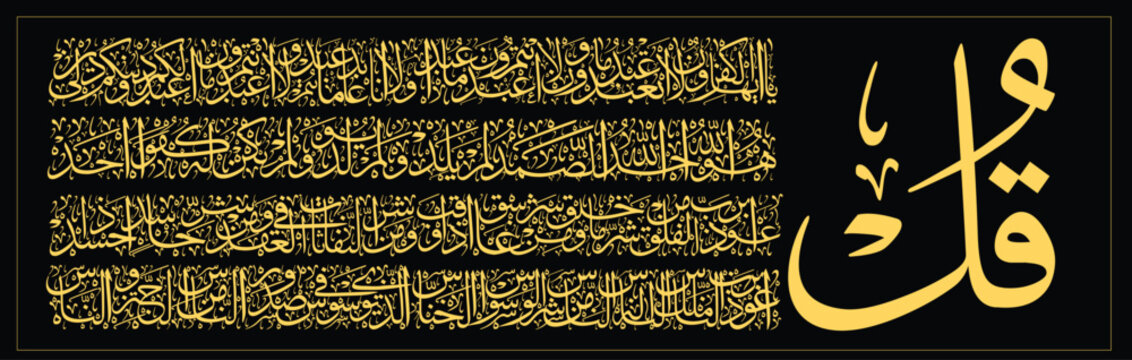 قُلْ
يا أيها الكفرون لا أعبد ما تعبدون ولا أنتم عبدون ما أعبد ولا أنا عابد ما عبدتم ولا أنتم عبدون ما أعبد لكم دينكم ولي دين
هو الله أحد الله الصمد لم يلد ولم يولد ولم يكن له كفوا أحد
أعوذ برب الفلق من شر ما خلق ومن شر غاسق إذا وقب ومن شر النفاثات في العقد ومن شر حاسد إذا حسد
أعوذ برب الناس ملك الناس إله الناس من شر الوسواس الخناس الذي يوسوس في صدور الناس من الجنة والناس